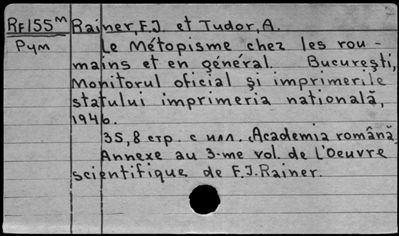 RF155ᴹ Rainer, F.J. et Tudor, A.
Рум Le Métopisme chez les rou-
mains et en général. Bucureşti,
Monitorul oficial şi imprimerile
statului imprimeria naţională,
1946.
35, 8 стр. с илл. (Academia română.
Annexe au 3-me vol. de L'Oeuvre
scientifique de F.J. Rainer.